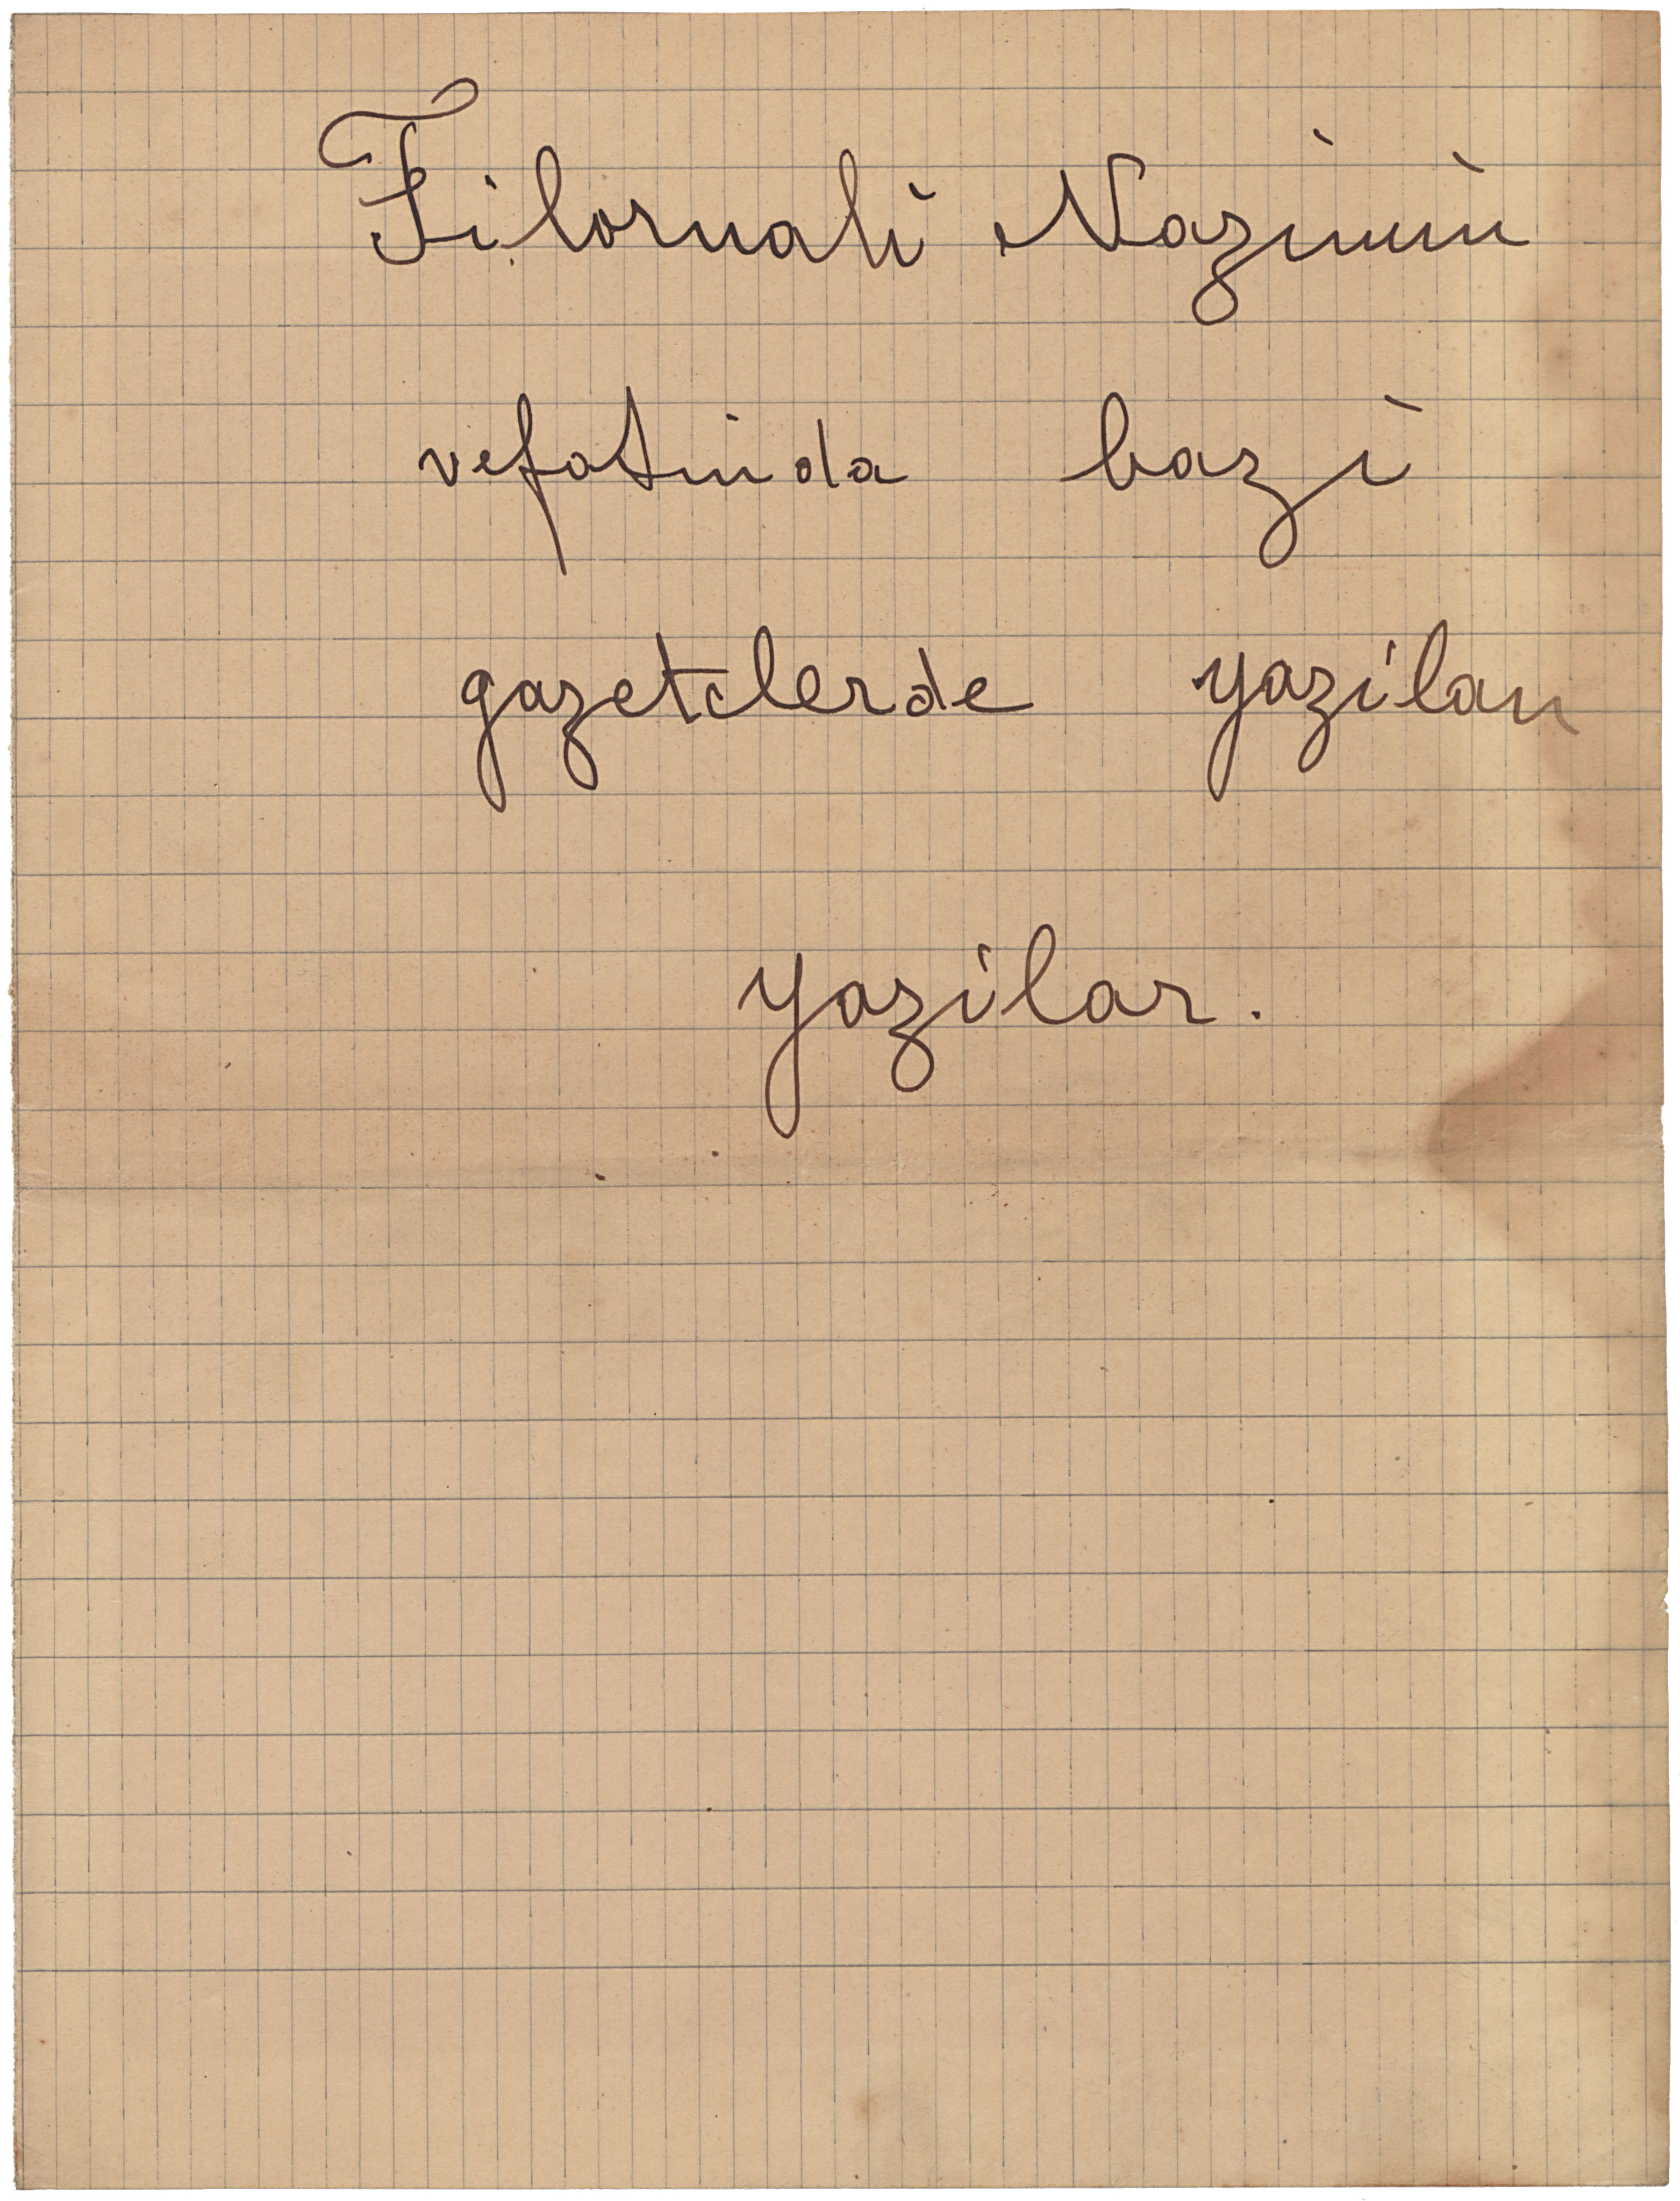 Filornalı Nazımın
vefatında bazı
gazetelerde yazılan
yazılar.